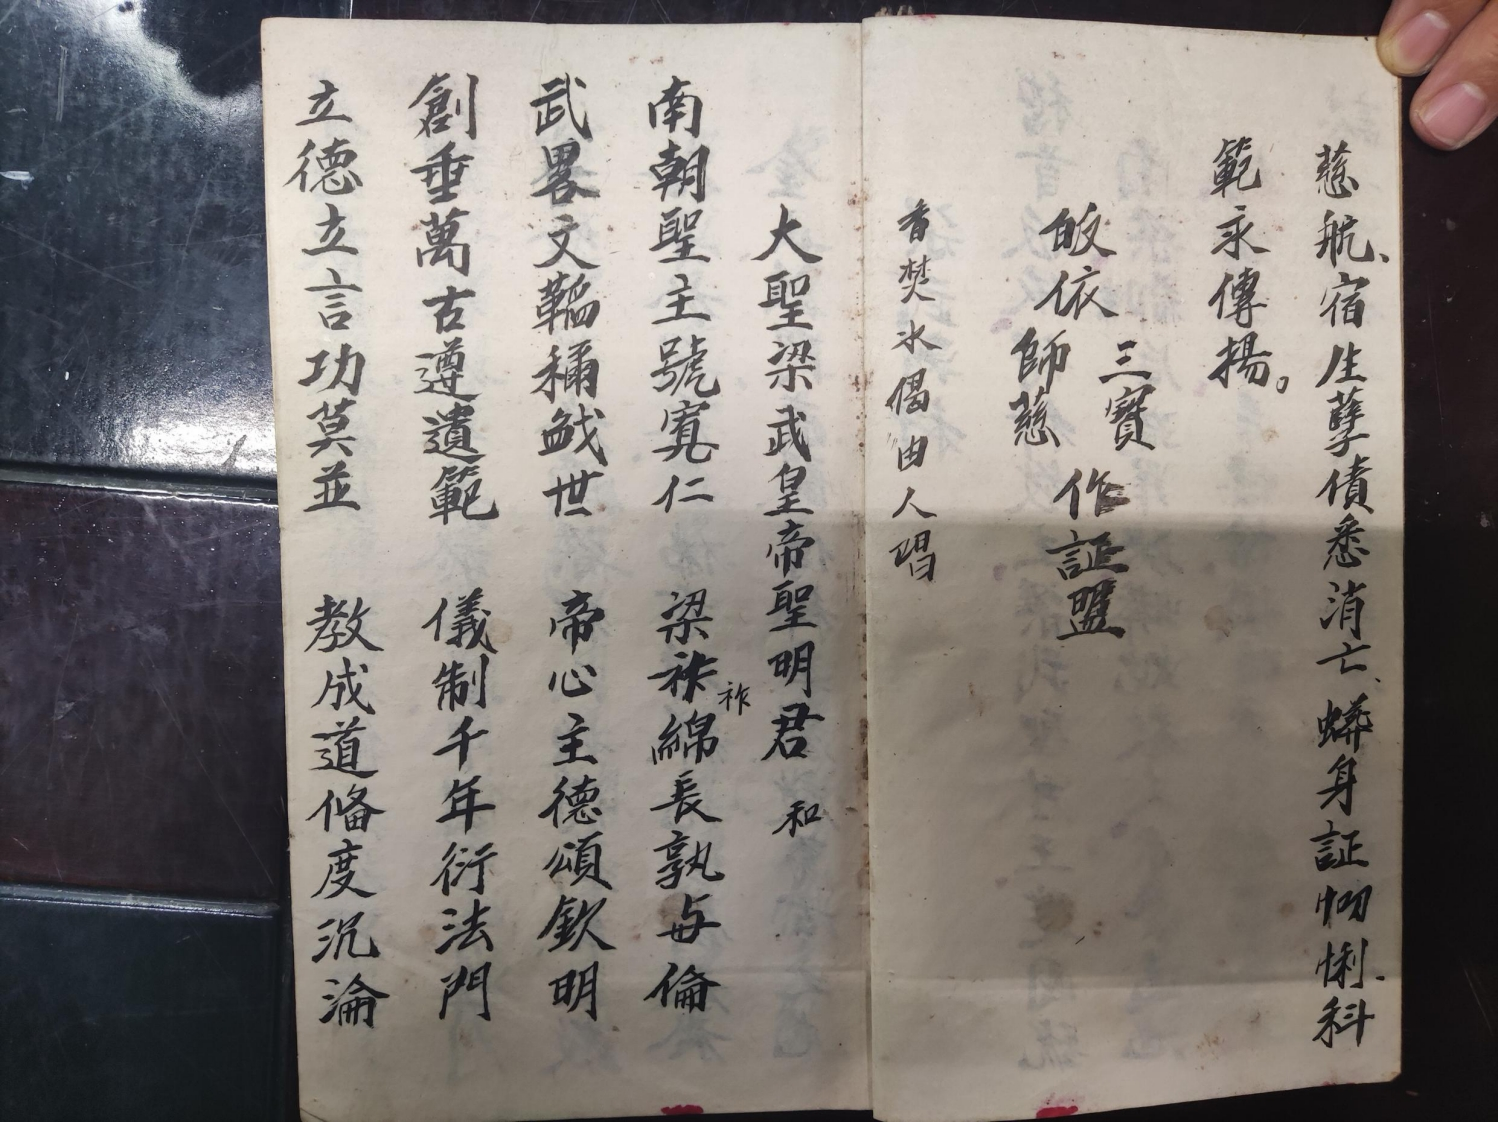 慈航、宿生孽債悉消亡、蟒身証忉悧、科
範永傳揚。
皈依
三寶
師慈
作証盟
香焚水偈由人唱
大聖梁武皇帝聖明君 和
南朝聖主號寬仁 梁祚綿長孰与倫
祚
武畧文韜稱 世 帝心主德頌欽明
創垂萬古遵遺範 儀制千年衍法門
立德立言功莫並 教成道俻度沉淪